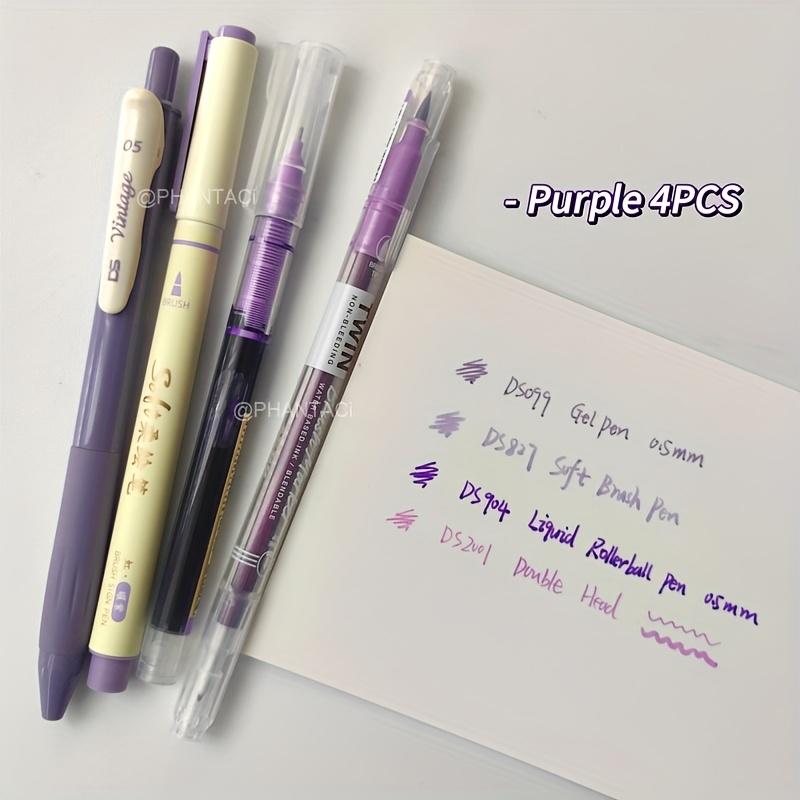 - Purple 4PCS
05
Vintage
DS
@PHANTACi
BRUSH
Soft柔绘笔
BRUSH SIGN PEN
TWIN
NON-BLEEDING
WATER BASED INK / BLENDABLE
@PHANTACi
DS099 Gel pen 0.5mm
DS827 Soft Brush Pen
DS904 Liquid Rollerball pen 0.5mm
DS2001 Double Head